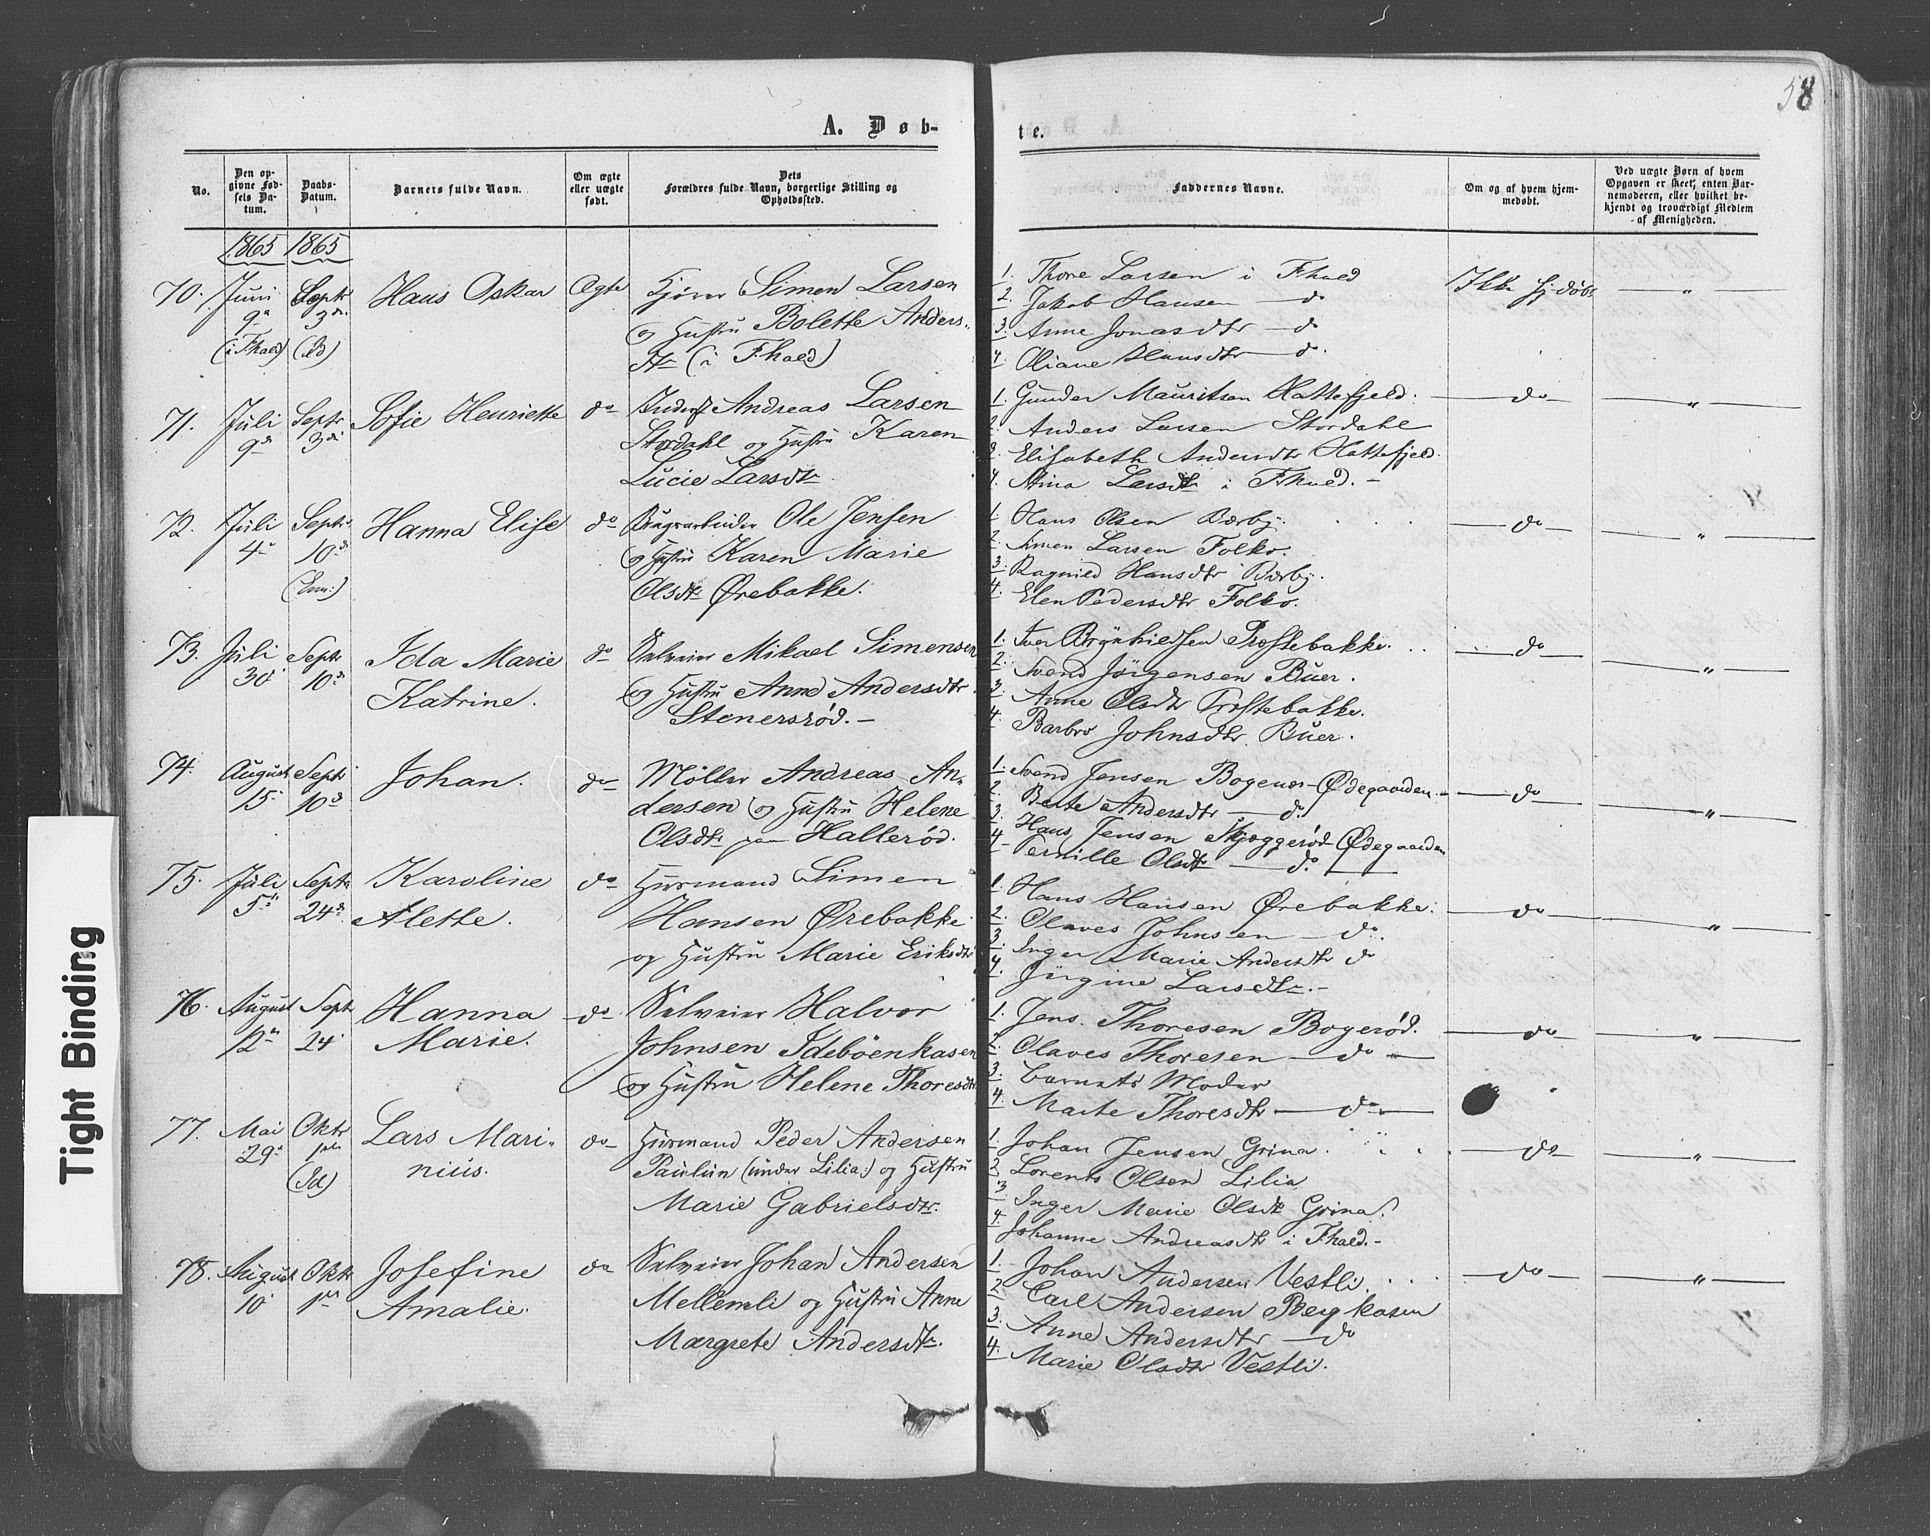 58
A. Døb-
te.
No.
Den op-
givne Fød-
sels Da-
tum.
Daabs-
Datum.
Barnets fulde Navn.
Om ægte
eller uægte
født.
Dets
Forældres fulde Navn, borgerlige Stilling og
Opholdssted.
Faddernes Navne.
Om og af hvem hjem-
medøbt.
Ved uægte Børn af hvem
Opgaven er skeet, enten Bar-
nemoderen, eller hvilket be-
kjendt og troværdigt Medlem
af Menigheden.
1865 1865
70. Juni 9de (i Fhald) Septr 3die (do)
Hans Oskar
Ægte
Kjører Simen Larsen
og Hustru Bolette Anders-
dtr (i Fhald)
1. Thore Larsen i Fhald
2. Jakob Hansen — do
3. Anne Jonasdtr — do
4. Oliane Hansdtr — do.
Ikke hj-døbt
— " —
71. Juli 9de Septr 3die
Sofie Henriette
do
Inderst Andreas Larsen
Stordahl og Hustru Karen
Lucie Larsdtr.
1. Gunder Mauritsen Hattefjeld.
2. Anders Larsen Stordahl
3. Elisabeth Andersdtr Hattefjeld.
4. Stina Larsdtr i Fhald. –
— do —
— " —
72. Juli 4de Septr 10de (Enn:)
Hanna Elise
do
Brugsarbeider Ole Jensen
og Hustru Karen Marie
Olsdtr Ørebakke.
1. Hans Olsen Bærby.
2. Simen Larsen Folkø.
3. Ragnild Hansdtr Bærby.
4. Elen Pedersdtr Folkø.
— do —
— " —
73. Juli 30 Septr 10de
Ida Marie
Katrine.
do
Selveier Mikael Simensen
og Hustru Anne Andersdtr
Stenersrød. –
1. Iver Brynhildsen Præstebakke.
2. Svend Jørgensen Buer.
3. Anne Olsdtr Præstebakke.
4. Barbro Johnsdtr Buer.
— do —
— " —
74. August 15 Septr 10de
Johan.
do
Møller Andreas An-
dersen og Hustru Helene
Olsdtr paa Hallerød.
1. Svend Jensen Bogerød-Ødegaarden.
2. Berte Andersdtr — do.
3. Hans Jensen Skjeggerød-Ødegaarden
4. Pernille Olsdtr — do.
— do —
— " —
75. Juli 5te Septr 24de
Karoline
Alette.
do
Husmand Simen
Hansen Ørebakke
og Hustru Marie Eriksdtr
1. Hans Hansen Ørebakke.
2. Olaves Johnsen — do.
3. Inger Marie Andersdtr do
4. Jørgine Larsdtr. –
— do —
— " —
76. August 12te Septr 24
Hanna
Marie.
do
Selveier Halvor
Johnsen Idebøenkasen
og Hustru Helene Thoresdtr
1. Jens Thoresen Bogerød.
2. Olaves Thoresen — do —
3. Barnets Moder
4. Marte Thoresdtr — do —
— do —
— " —
77. Mai 29 Oktr 1ste (Id)
Lars Mari-
nius.
do
Husmand Peder Andersen
Paulun (under Lilia:) og Hustru
Marie Gabrielsdtr.
1. Johan Jensen Grina.
2. Lorents Olsen Lilia
3. Inger Marie Olsdtr Grina.
4. Johanne Andreasdtr i Fhald. –
— do
— " —
78. August 10 Oktr 1ste
Josefine
Amalie.
do
Selveier Johan Andersen
Mellemli og Hustru Anne
Margrete Andersdtr.
1. Johan Andersen Vestli.
2. Carl Andersen Bergkasen
3. Anne Andersdtr — do
4. Marie Olsdtr Vestli.
— do —
— " —
Tight Binding